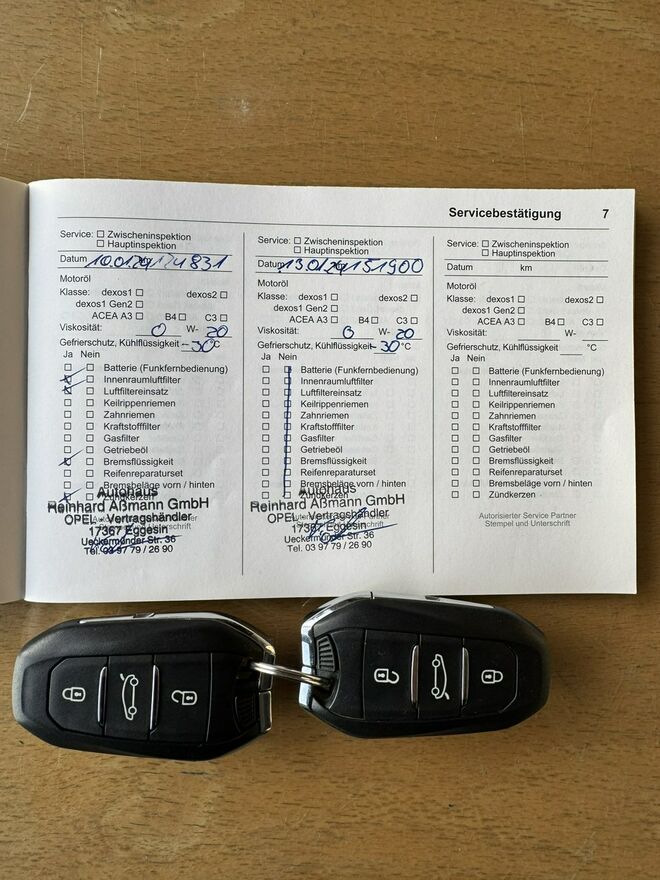 Servicebestätigung 7
Service: Zwischeninspektion
Hauptinspektion
Datum
Motoröl
Klasse: dexos1 dexos2
dexos1 Gen2
ACEA A3 B4 C3
Viskosität: 0 W- 20
Gefrierschutz, Kühlflüssigkeit -30 °C
Ja Nein
Batterie (Funkfernbedienung)
Innenraumluftfilter
Luftfiltereinsatz
Keilrippenriemen
Zahnriemen
Kraftstofffilter
Gasfilter
Getriebeöl
Bremsflüssigkeit
Reifenreparaturset
Bremsbeläge vorn / hinten
Zündkerzen
Autohaus
Reinhard Aßmann GmbH
OPEL - Vertragshändler
17367 Eggesin
Ueckermünder Str. 36
Tel. 03 97 79 / 26 90
Service: Zwischeninspektion
Hauptinspektion
Datum
Motoröl
Klasse: dexos1 dexos2
dexos1 Gen2
ACEA A3 B4 C3
Viskosität: 0 W- 20
Gefrierschutz, Kühlflüssigkeit -30 °C
Ja Nein
Batterie (Funkfernbedienung)
Innenraumluftfilter
Luftfiltereinsatz
Keilrippenriemen
Zahnriemen
Kraftstofffilter
Gasfilter
Getriebeöl
Bremsflüssigkeit
Reifenreparaturset
Bremsbeläge vorn / hinten
Zündkerzen
Autohaus
Reinhard Aßmann GmbH
OPEL - Vertragshändler
17367 Eggesin
Ueckermünder Str. 36
Tel. 03 97 79 / 26 90
Service: Zwischeninspektion
Hauptinspektion
Datum km
Motoröl
Klasse: dexos1 dexos2
dexos1 Gen2
ACEA A3 B4 C3
Viskosität: W-
Gefrierschutz, Kühlflüssigkeit °C
Ja Nein
Batterie (Funkfernbedienung)
Innenraumluftfilter
Luftfiltereinsatz
Keilrippenriemen
Zahnriemen
Kraftstofffilter
Gasfilter
Getriebeöl
Bremsflüssigkeit
Reifenreparaturset
Bremsbeläge vorn / hinten
Zündkerzen
Autorisierter Service Partner
Stempel und Unterschrift